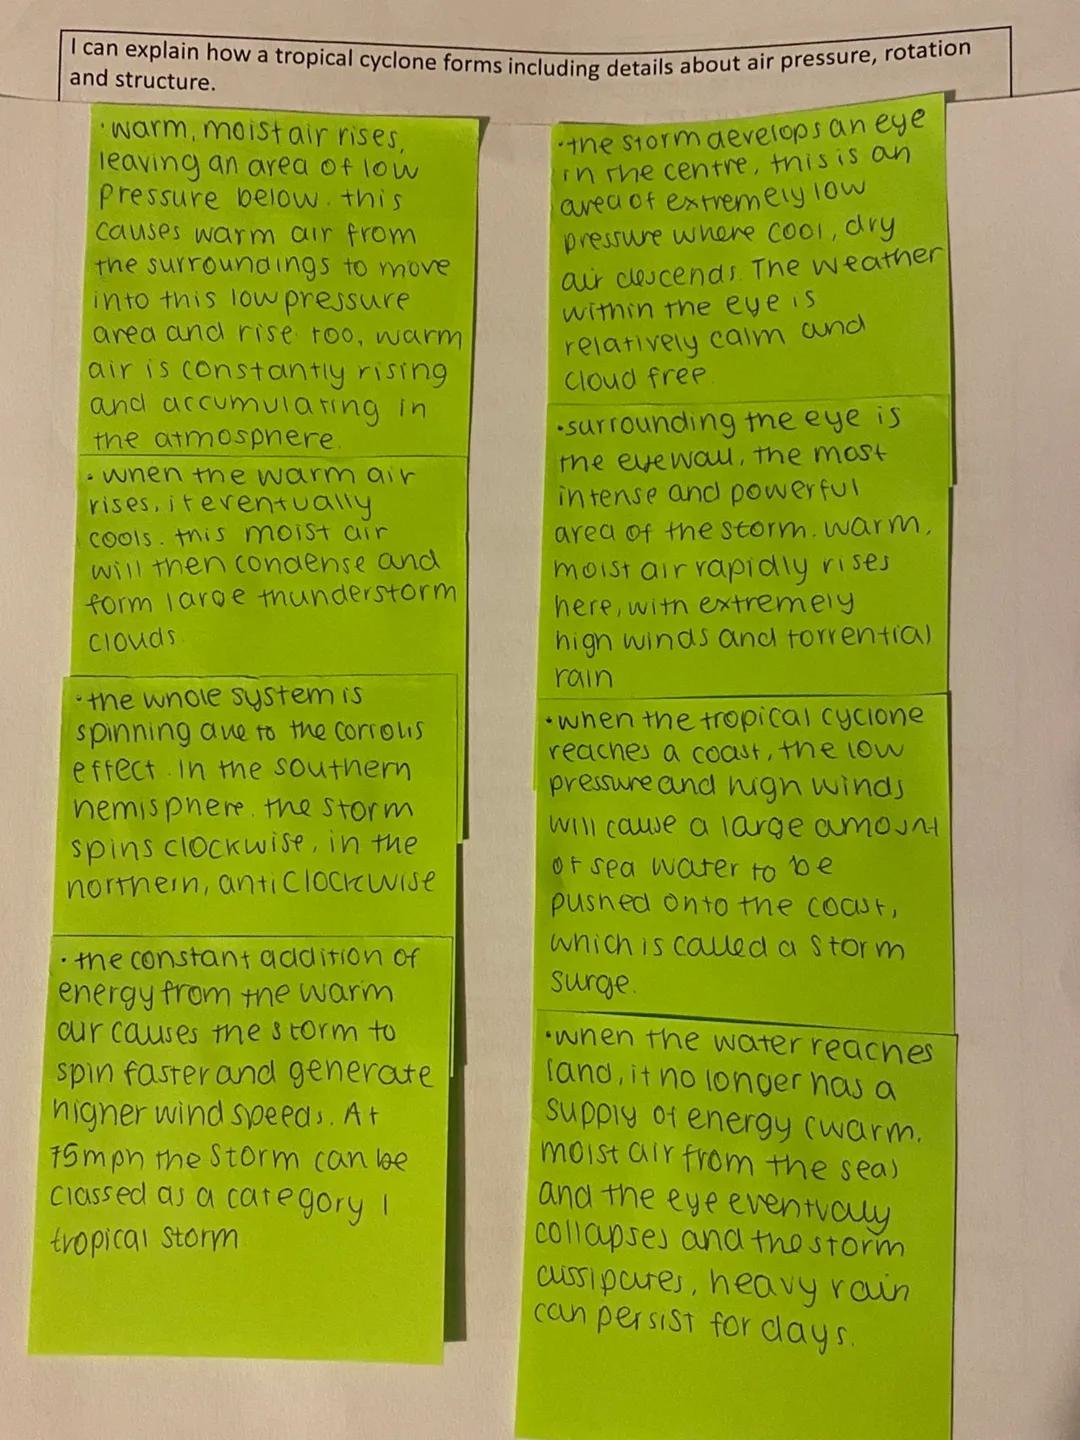 I can explain how a tropical cyclone forms including details about air pressure, rotation
and structure.
• warm, moist air rises,
leaving an area of low
pressure below. this
causes warm air from
the surroundings to move
into this low pressure
area and rise too, warm
air is constantly rising
and accumulating in
the atmosphere.
• when the warm air
rises, it eventually
cools. this moist air
will then condense and
form large thunderstorm
clouds
• the whole system is
spinning due to the corriolis
effect. In the southern
hemisphere. the storm
spins clockwise, in the
northern, anticlockwise
• the constant addition of
energy from the warm
air causes the storm to
spin faster and generate
higher wind speeds. At
75mph the storm can be
classed as a category 1
tropical storm
• the storm develops an eye
in the centre, this is an
area of extremely low
pressure where cool, dry
air descends. The weather
within the eye is
relatively calm and
cloud free.
• surrounding the eye is
the eyewall, the most
intense and powerful
area of the storm. warm,
moist air rapidly rises
here, with extremely
high winds and torrential
rain
• when the tropical cyclone
reaches a coast, the low
pressure and high winds
will cause a large amount
of sea water to be
pushed onto the coast,
which is called a storm
surge.
• when the water reaches
land, it no longer has a
supply of energy (warm,
moist air from the sea)
and the eye eventually
collapses and the storm
dissipates, heavy rain
can persist for days.